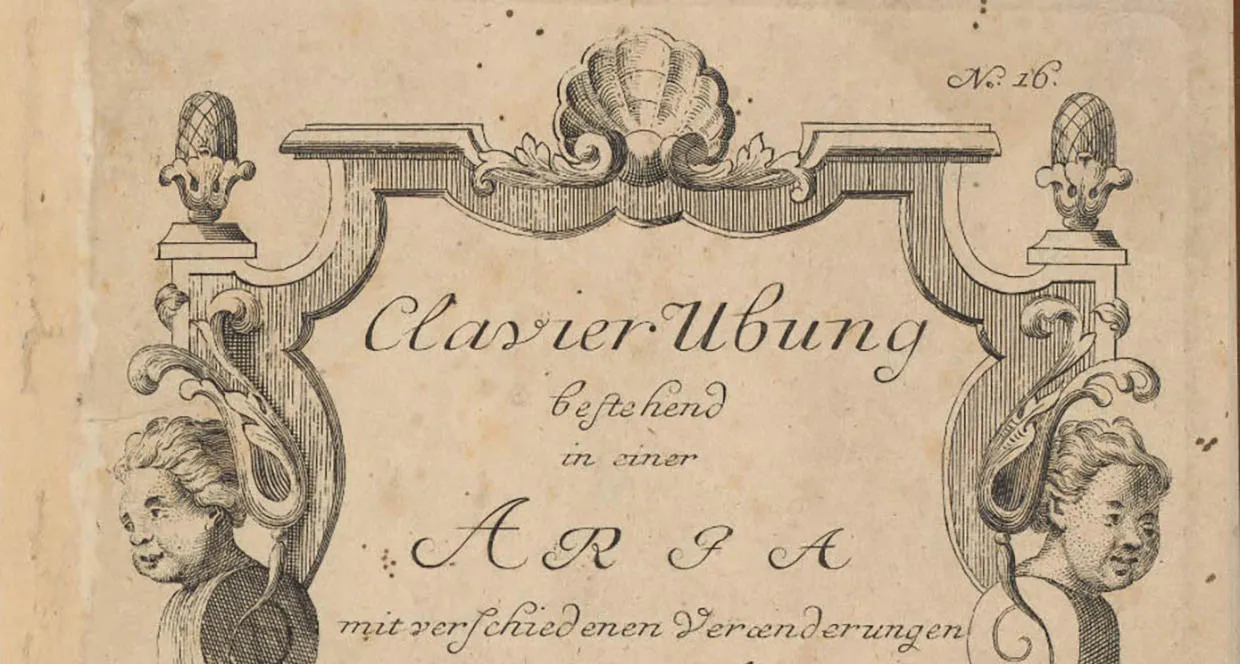 No. 16.
Clavier Ubung
bestehend
in einer
ARIA
mit verschiedenen Verænderungen